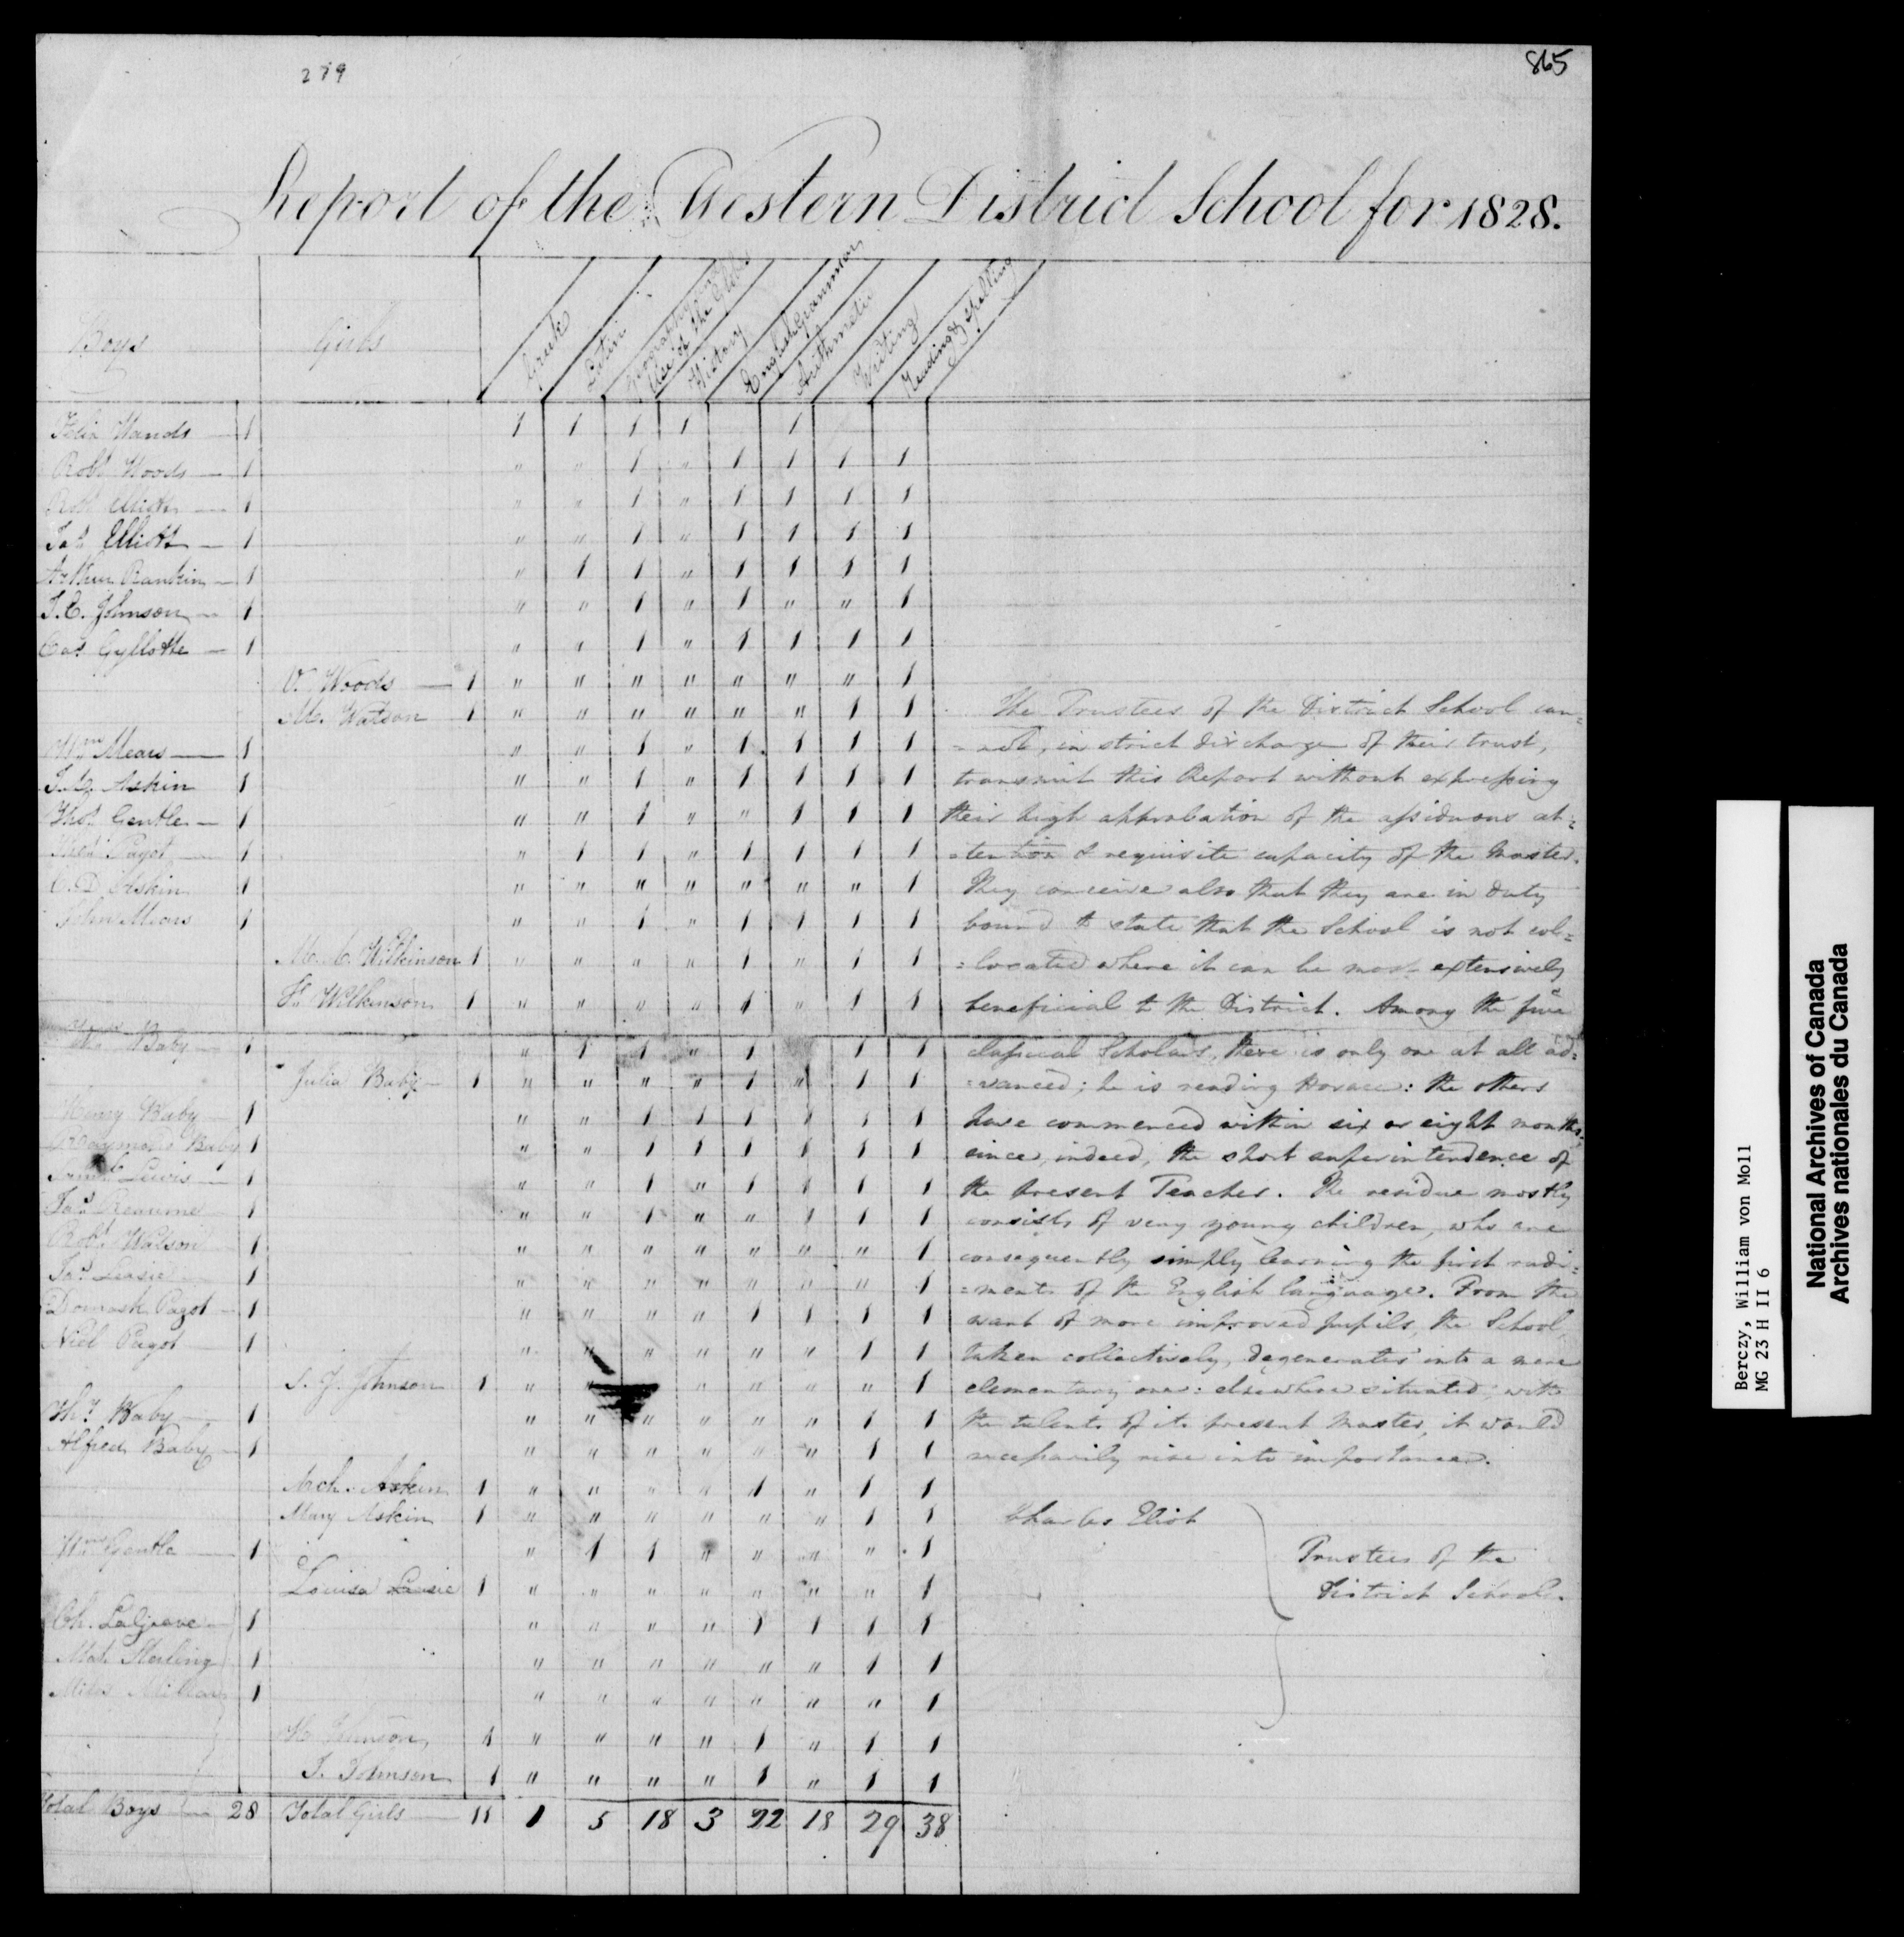 279
865
Report of the Western District School for 1828.
Boys Girls Greek Latin Geography and Use of the Globes History English Grammar Arithmetic Writing Reading & Spelling
Felix Wands — 1 1 1 1 1 1
Robt Woods — 1 " " 1 " 1 1 1 1
Robt Elliott — 1 " " 1 " 1 1 1 1
Jas Elliott — 1 " " 1 " 1 1 1 1
Arthur Rankin — 1 " 1 1 " 1 1 1 1
J. E. Johnson — 1 " " 1 " 1 " " 1
Cas. Gyllotte — 1 " " 1 " 1 1 1 1
V. Woods — 1 " " " " " " " 1
M. Watson 1 " " " " " " 1 1
Wm Mears — 1 " " 1 " 1 1 1 1
J. Askin 1 " " 1 " 1 1 1 1
Thos Gentle — 1 " " 1 " " 1 1 1
Pagot — 1 " 1 1 " 1 1 1 1
C. D. Askin 1 " " " " " " " 1
John Mears 1 " " 1 " 1 1 1 1
M. C. Wilkinson 1 " " " " 1 " 1 1
F. Wilkinson 1 " " " " 1 " 1 1
Chs Baby — 1 " 1 1 " 1 1 1
Julia Baby — 1 " " " " 1 " 1 1
Henry Baby — 1 " " 1 1 1 1 1 1
Raymond Baby 1 " " 1 1 1 1 1 1
Lewis — 1 " " 1 " 1 1 1 1
Jas Reaume — 1 " " 1 " " 1 1 1
Robt Watson 1 " " " " " " " 1
Jas Leasie 1 " " " " " " " 1
Domask Pagot — 1 " " " " 1 1 1 1
Niel Pagot — 1 " " " " " " 1 1
S. J. Johnson 1 " " " " " " 1
Ths Baby — 1 " " " " " " 1 1
Alfred Baby — 1 " " " " " " 1 1
Arch. Askin 1 " " " " 1 " 1 1
Mary Askin 1 " " " " " " 1 1
Wm Gentle — 1 " 1 1 " " " " 1
Louisa Leasie 1 " " " " " " " 1
Ch. LaGrave — 1 " " " " 1 1 1 1
Mat. Sterling 1 " " " " " " 1 1
Miles 1 " " " " " " " 1
H. Johnson, 1 " " " " 1 " 1 1
J. Johnson 1 " " " " 1 " 1 1
Total Boys — 28 Total Girls — 11 1 5 18 3 22 18 29 38
The Trustees of the District School can=
=not, in strict discharge of their trust,
transmit this Report without expressing
their high approbation of the assiduous at=
=tention & requisite capacity of the Master.
They conceive also that they are in duty
bound to state that the School is not col=
=located where it can be most extensively
beneficial to the District. Among the five
classical Scholars, there is only one at all ad=
=vanced; he is reading Horace: the others
have commenced within six or eight months,
since, indeed, the short superintendence of
the present Teacher. The residue mostly
consists of very young children, who are
consequently simply learning the first rudi=
=ments of the English language. From the
want of more improved pupils, the School,
taken collectively, degenerates into a mere
elementary one: elsewhere situated, with
the talents of its present Master, it would
necessarily rise into importance.
Charles Eliot
Trustees of the
District School.
Berczy, William von Moll
MG 23 H II 6
National Archives of Canada
Archives nationales du Canada